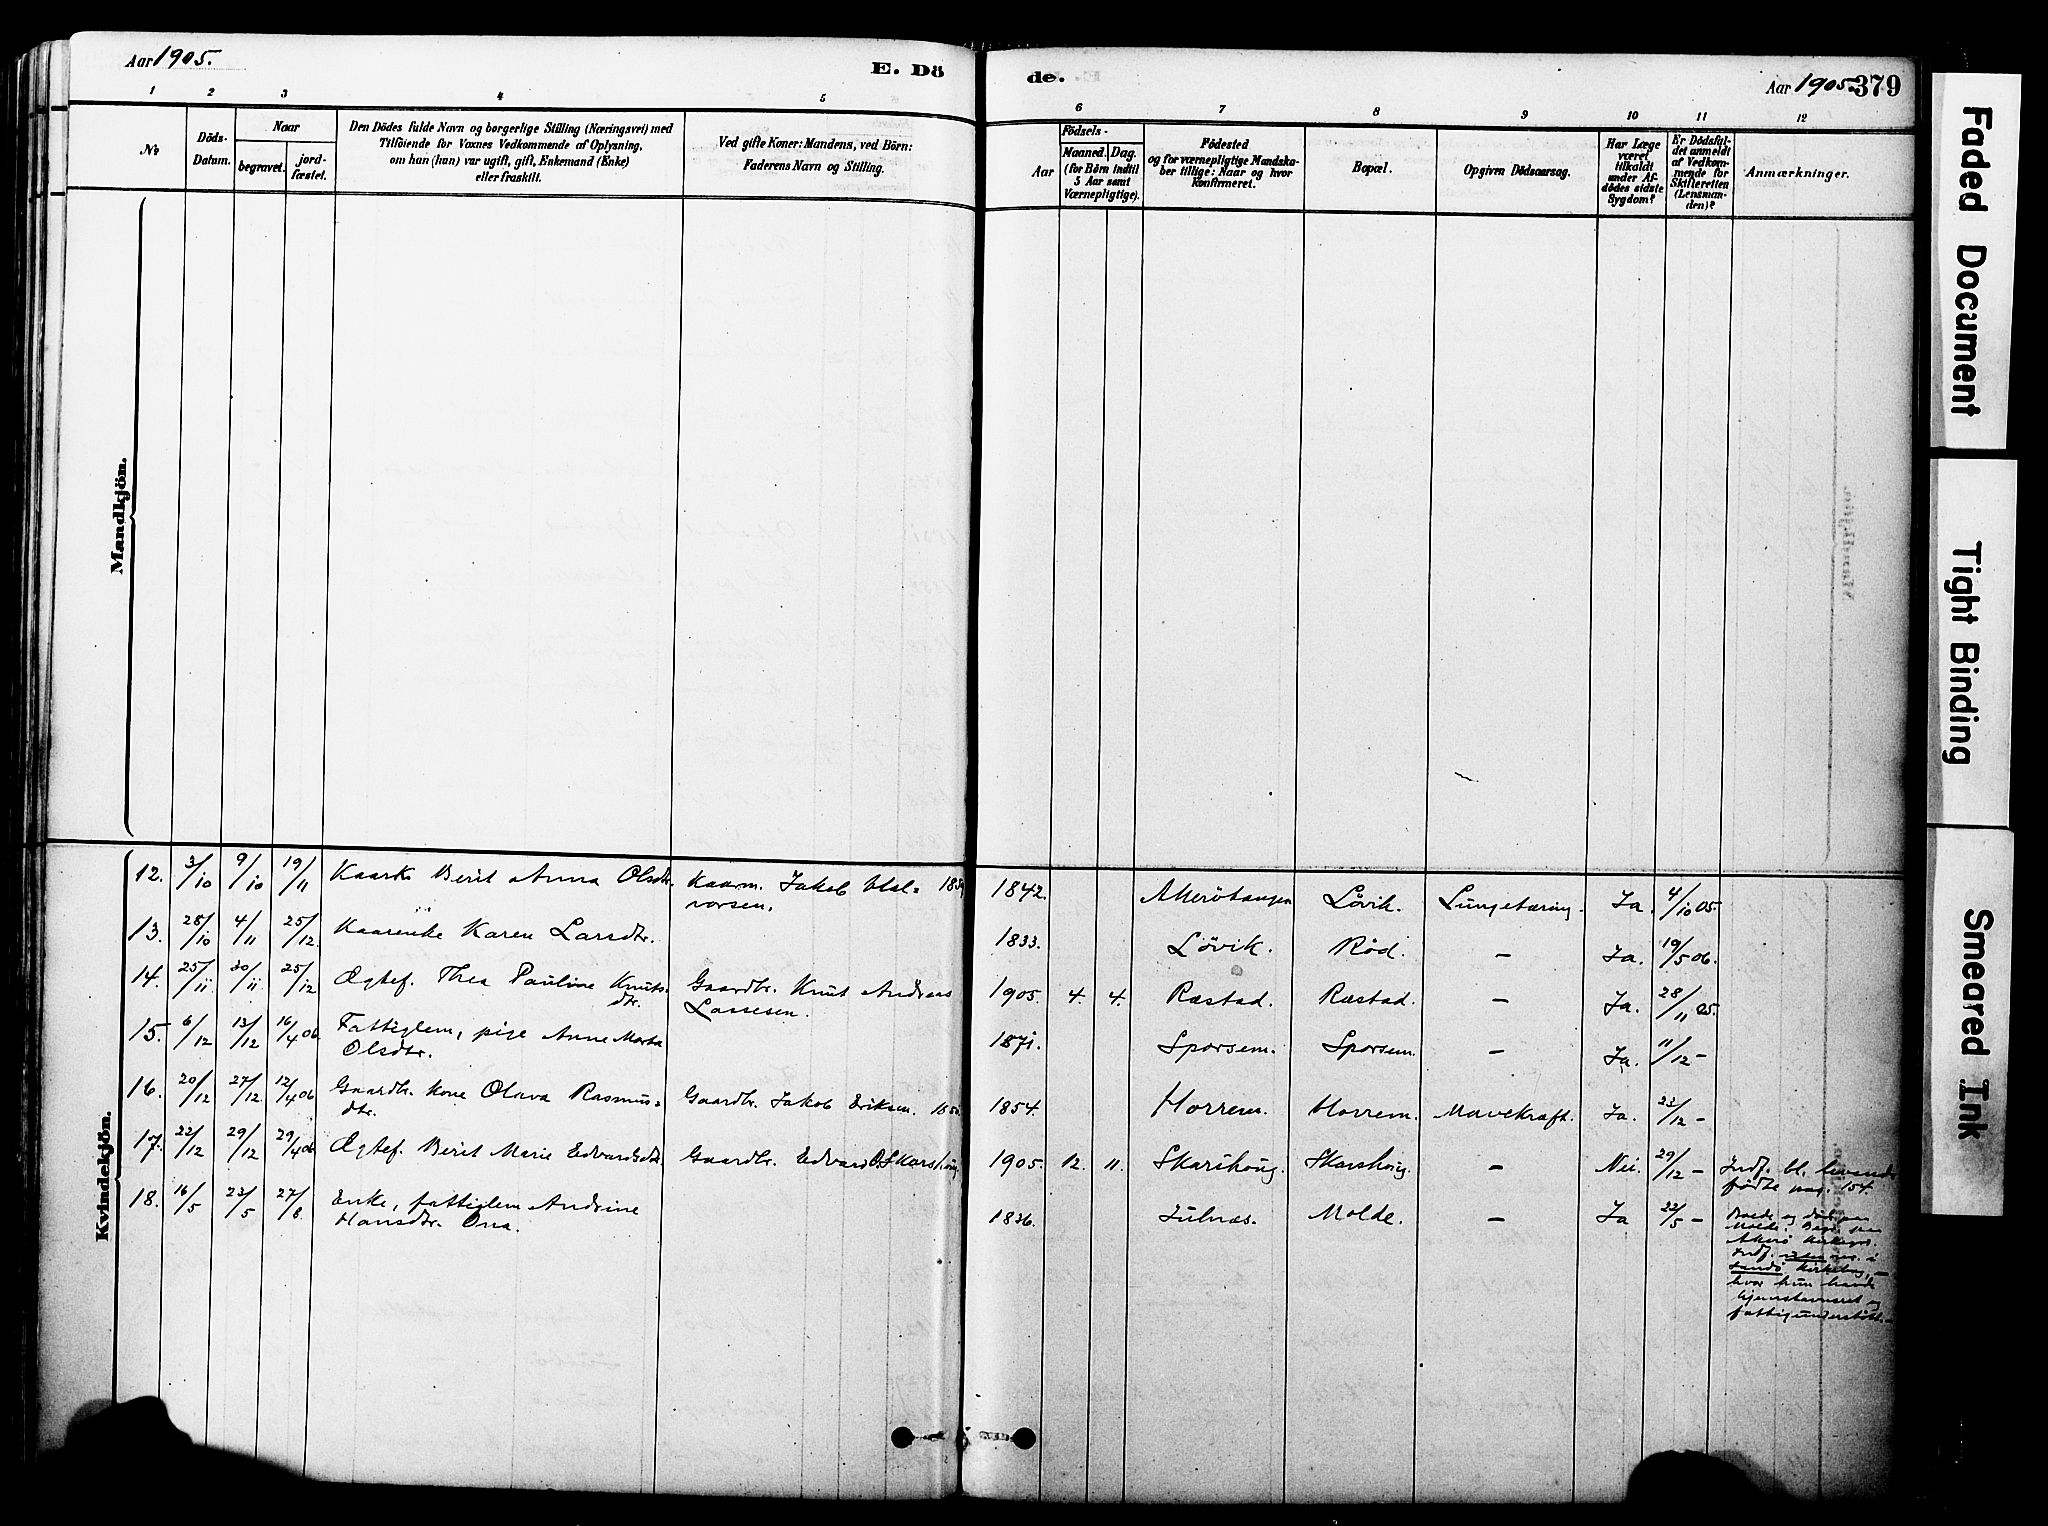 Aar 1905.
E. Dö
de.
Aar 1905. 379
1 2 3 4 5 6 7 8 9 10 11 12
№
Döds-
Datum.
Naar
begravet.
jord-
fæstet.
Den Dödes fulde Navn og borgerlige Stilling (Næringsvei) med
Tilföiende for Voxnes Vedkommende af Oplysning,
om han (hun) var ugift, gift, Enkemand (Enke)
eller fraskilt.
Ved gifte Koner: Mandens, ved Börn:
Faderens Navn og Stilling.
Födsels-
Aar
Maaned.
Dag.
(for Börn indtil
5 Aar samt
Værnepligtige).
Födested
og for værnepligtige Mandska-
ber tillige: Naar og hvor
konfirmeret.
Bopæl.
Opgiven Dödsaarsag.
Har Læge
været
tilkaldt
under Af-
dödes sidste
Sygdom?
Er Dödsfal-
det anmeldt
af Vedkom-
mende for
Skifteretten
(Lensman-
den)?
Anmærkninger.
Mandkjön.
Kvindekjön.
12. 3/10 9/10 19/11 Kaark. Berit Anna Olsdtr. Kaarm. Jakob Hal-
vorsen. 1842. Akerötangen Lövik. Lungetæring. Ja. 4/10 05.
13. 28/10 4/11 25/12. Kaarenke Karen Larsdtr. 1833. Lövik. Röd. – Ja. 19/5 06.
14. 25/11 30/11 25/12 Ægtef. Thea Pauline Knuts-
dtr. Gaardbr. Knut Andreas
Lassesen. 1905. 4. 4. Ræstad. Ræstad. – Ja. 28/11 05.
15. 6/12 13/12 16/4 06. Fattiglem, pige Anne Marta
Olsdtr. 1871. Sporsem. Sporsem. – Ja. 11/12 –
16. 20/12 27/12 12/4 06 Gaardbr. kone Olava Rasmus-
dtr. Gaardbr. Jakob Eriksen. 1854. Horrem. Horrem. Mavekræft. Ja. 23/12 –
17. 22/12 29/12 29/4 06 Ægtef. Berit Marie Edvardsdtr. Gaardbr. Edvard O. Skarshoug 1905. 12. 11. Skarshoug. Skarshoug. – Nei. 29/12 – Indf. bl. levende
födte pag. 154.
18. 16/5 23/5 27/8. Enke, fattiglem Andrine
Hansdtr. Ona. 1836. Julnæs. Molde. – Ja 22/5 – Boede og döde paa
Molde. Begr. paa
Akerö Kirkegd.
Indf. i
Sandö Kirkebog, –
hvor hun havde
hjemstavnsret og
fattigunderstött. –
Faded Document
Tight Binding
Smeared Ink